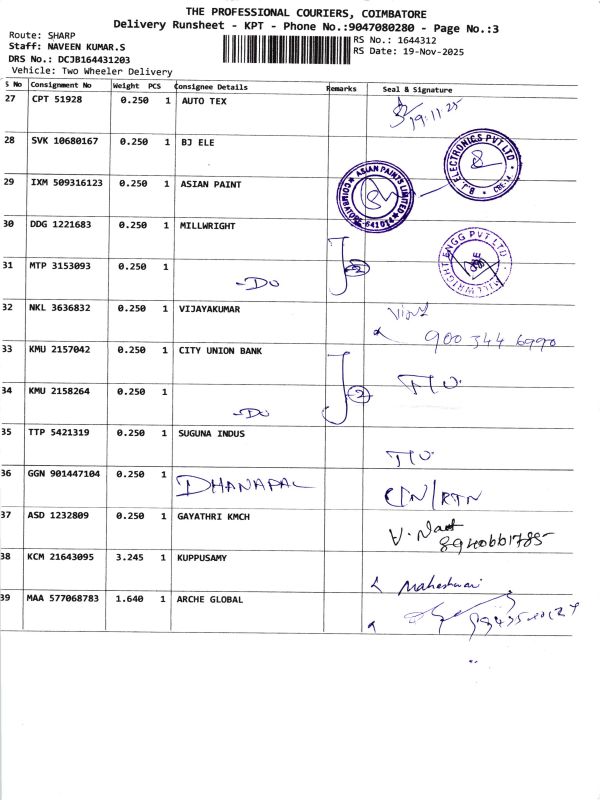 THE PROFESSIONAL COURIERS, COIMBATORE
Delivery Runsheet - KPT - Phone No.:9047080280 - Page No.:3
Route: SHARP
Staff: NAVEEN KUMAR.S
DRS No.: DCJB164431203
Vehicle: Two Wheeler Delivery
RS No.: 1644312
RS Date: 19-Nov-2025
S No Consignment No Weight PCS Consignee Details Remarks Seal & Signature
27 CPT 51928 0.250 1 AUTO TEX 19.11.25
28 SVK 10680167 0.250 1 BJ ELE
ELECTRONICS PVT LTD
29 IXM 509316123 0.250 1 ASIAN PAINT
ASIAN PAINTS LIMITED COIMBATORE 641014
30 DDG 1221683 0.250 1 MILLWRIGHT
MILLWRIGHT ENGG PVT LTD CBE
31 MTP 3153093 0.250 1 -Do 2
32 NKL 3636832 0.250 1 VIJAYAKUMAR
900 344 6990
33 KMU 2157042 0.250 1 CITY UNION BANK
34 KMU 2158264 0.250 1 -Do 2
35 TTP 5421319 0.250 1 SUGUNA INDUS
36 GGN 901447104 0.250 1 DHANAPAL CN/RTN
37 ASD 1232809 0.250 1 GAYATHRI KMCH
38 KCM 21643095 3.245 1 KUPPUSAMY Maheshwari
39 MAA 577068783 1.640 1 ARCHE GLOBAL